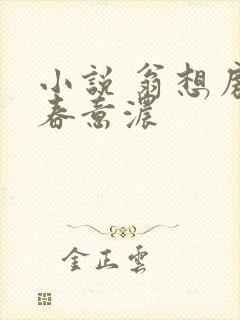 小說 翁想
春意濃
金正雲